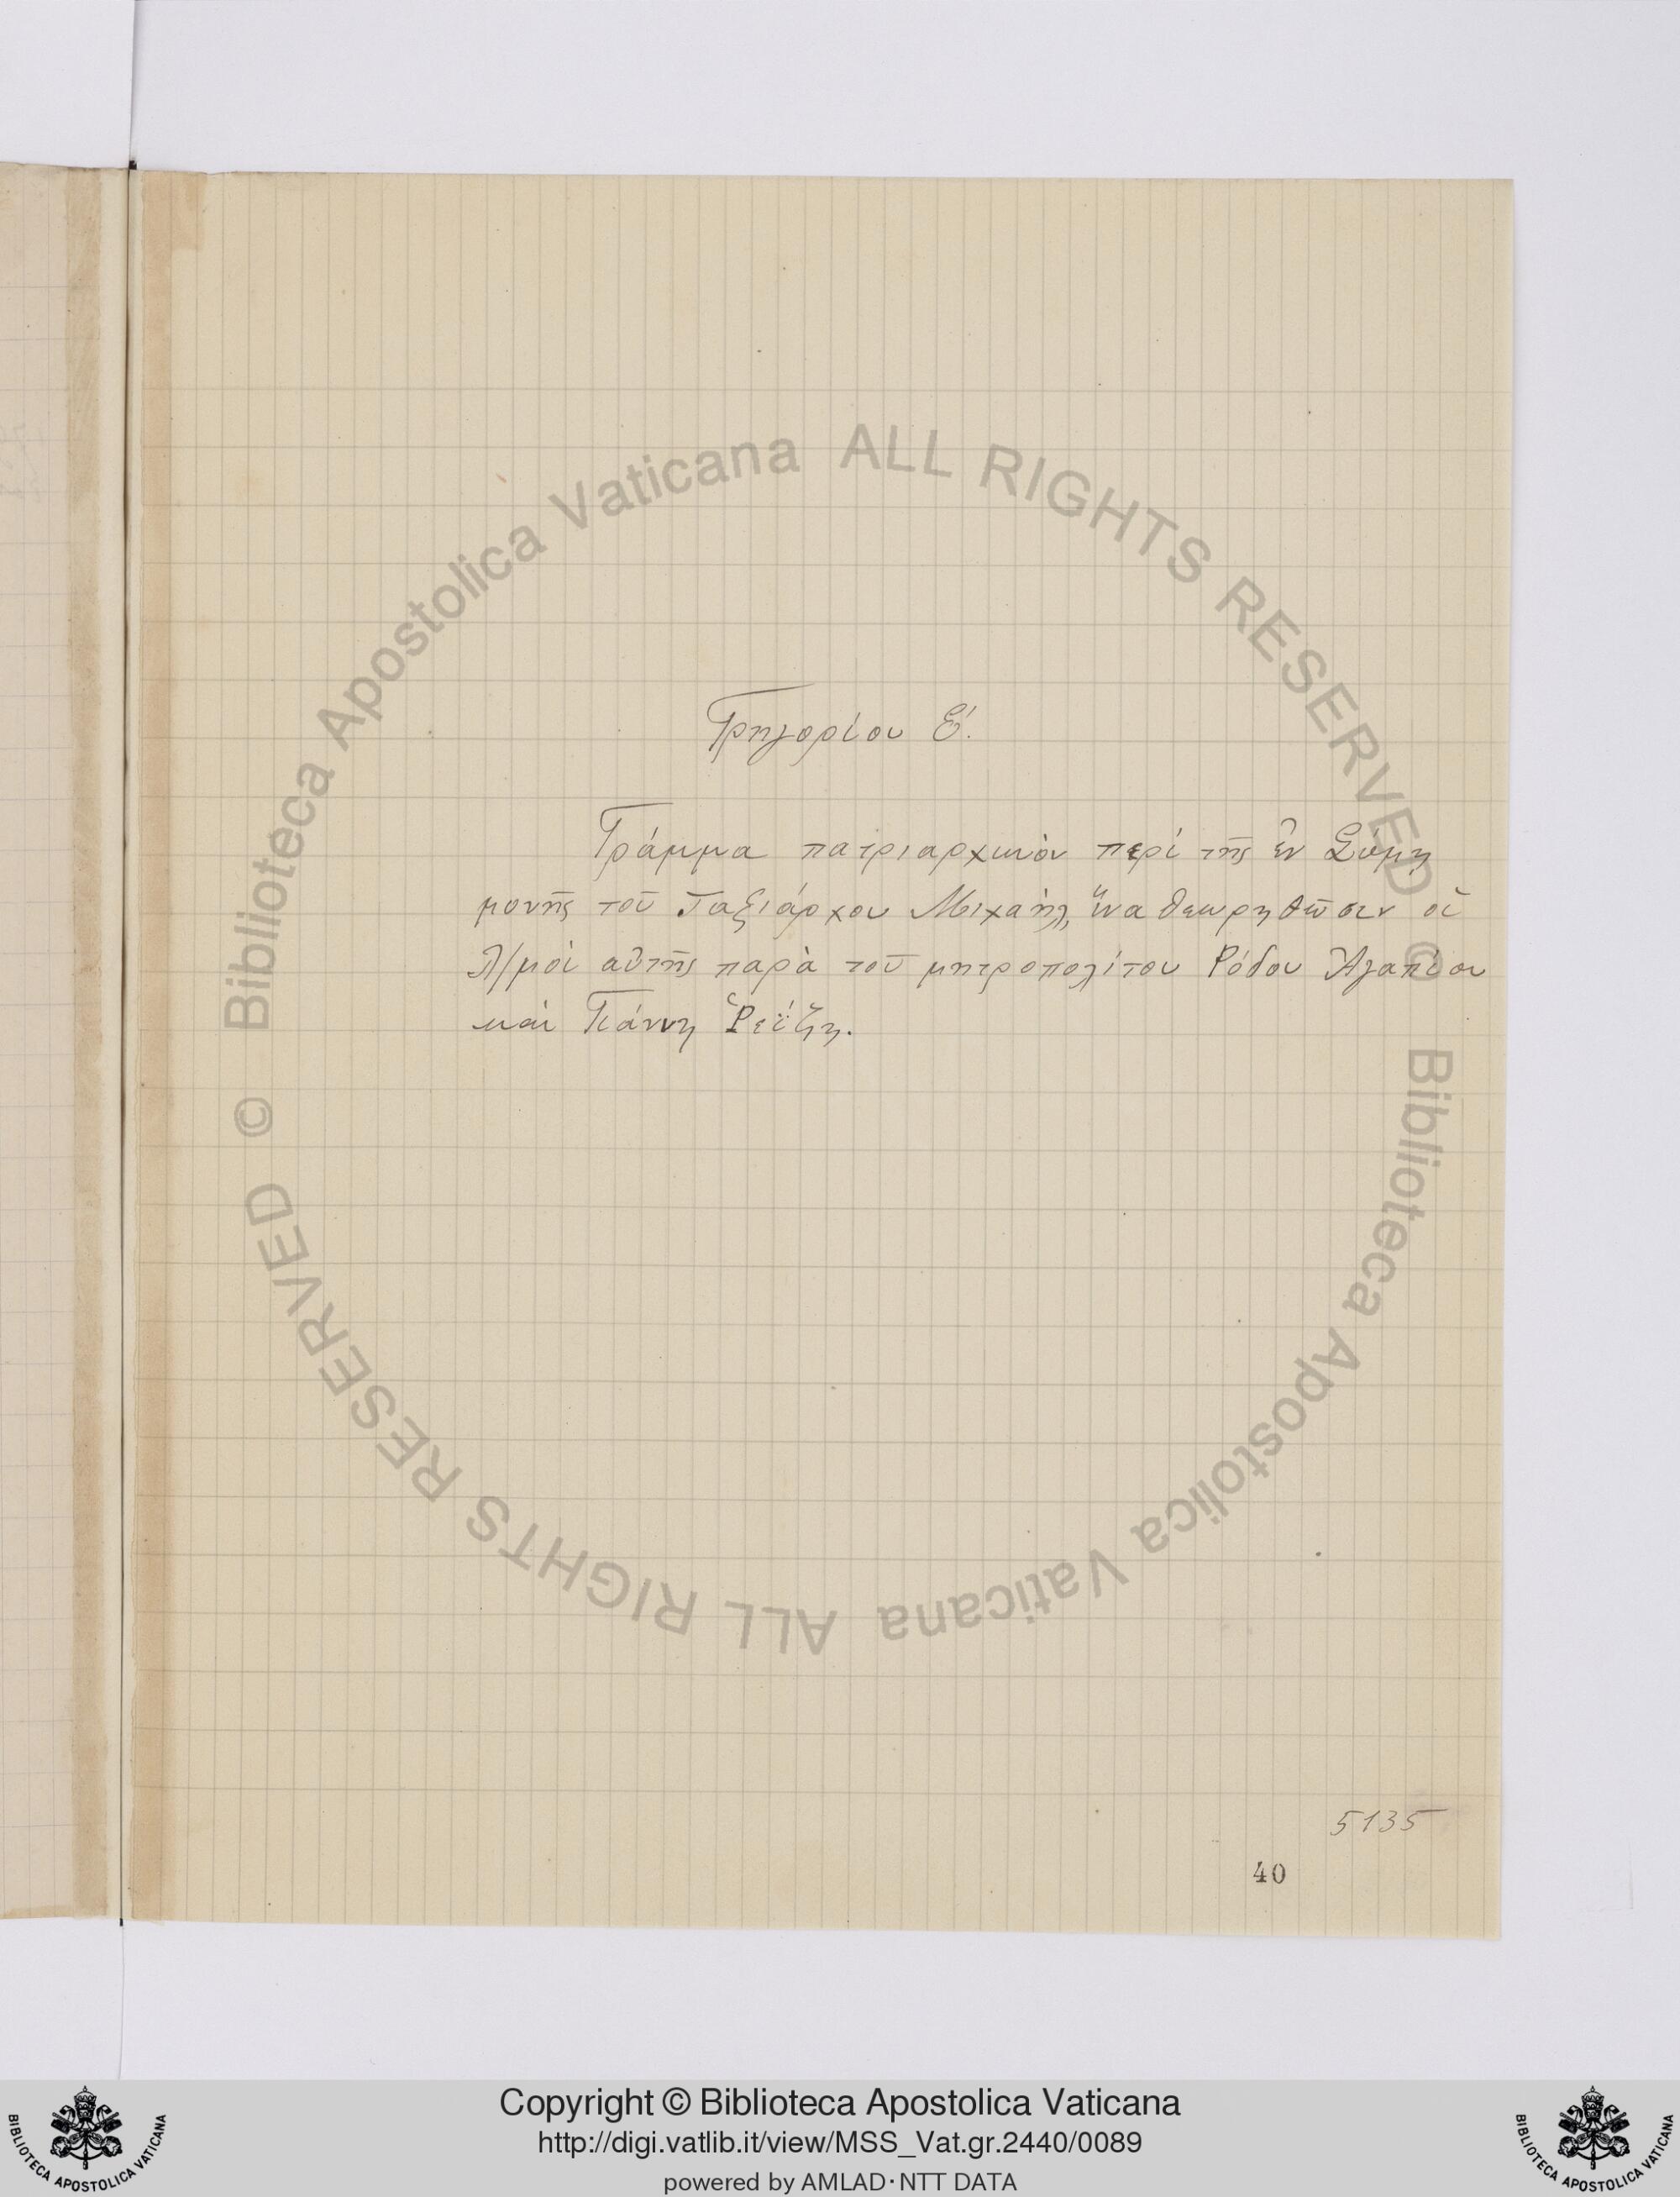 Γρηγορίου Ε΄.
Γράμμα πατριαρχικὸν περὶ τῆς ἐν Σύμῃ
μονῆς τοῦ Ταξιάρχου Μιχαήλ, ἵνα θεωρηθῶσιν οἱ
λ/μοὶ αὐτῆς παρὰ τοῦ μητροπολίτου Ρόδου Ἀγαπίου
καὶ Γιάννη Ῥεΐζη.
5135
40
Biblioteca Apostolica Vaticana ALL RIGHTS RESERVED ©
Biblioteca Apostolica Vaticana ALL RIGHTS RESERVED ©
Copyright © Biblioteca Apostolica Vaticana
http://digi.vatlib.it/view/MSS_Vat.gr.2440/0089
powered by AMLAD·NTT DATA
BIBLIOTECA APOSTOLICA VATICANA
BIBLIOTECA APOSTOLICA VATICANA